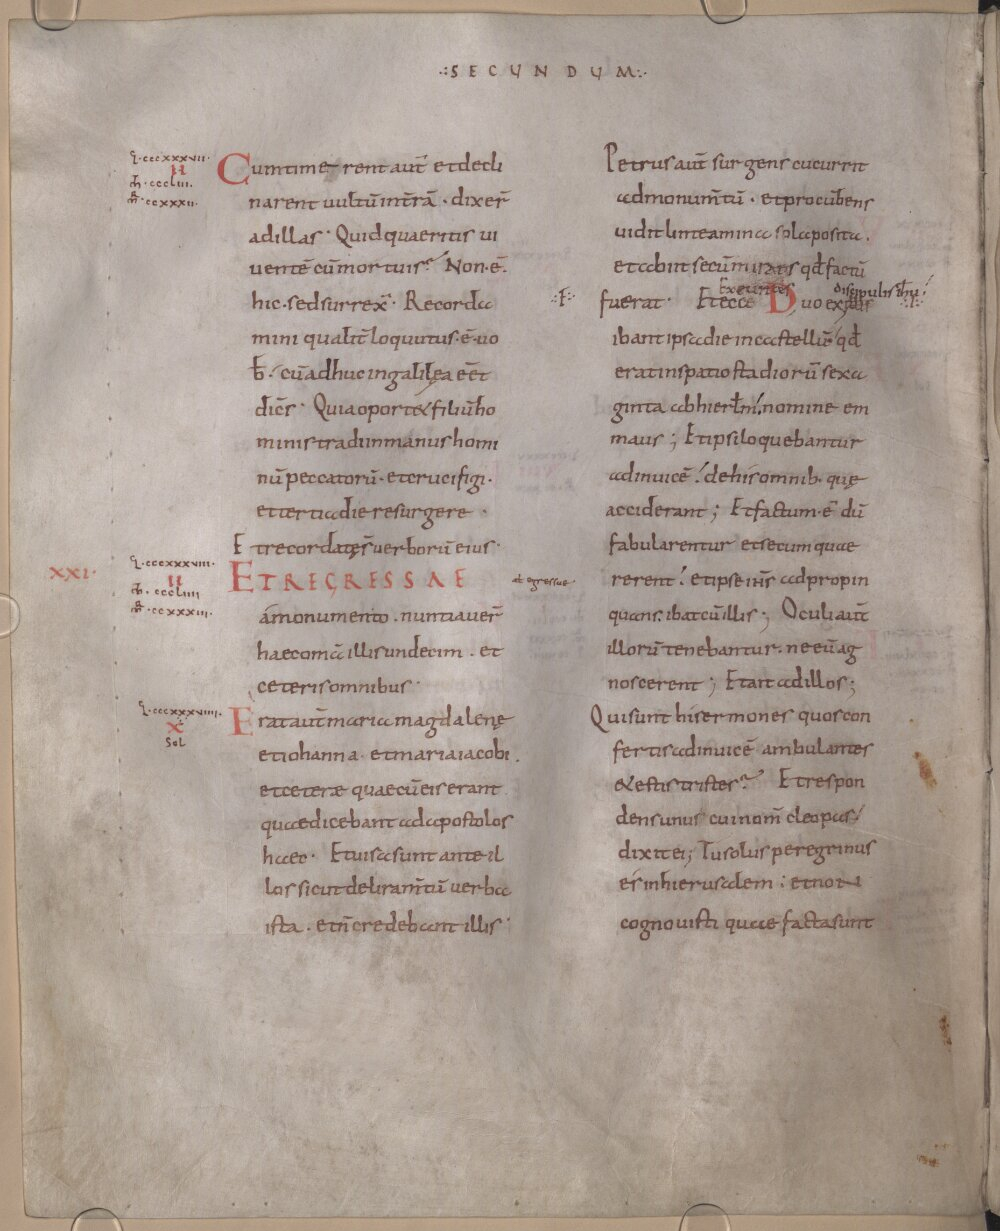 ·:SECUNDUM:·
L·cccxxxvii·
II
Cum timerent aut̄ et decli
M̄·cccliii·
M̄r·ccxxxii·
narent uultū in trā̄· dixer̄
ad illas· Quid quaeritis ui
uentē cū mortuis? Non·ē·
hic·sed surrex̄· Recorda
mini qualit̄ loquutus·ē·uo
b̄· cū adhuc in galilęa eēt
diēs· Quia oportet filiū ho
minis tradi in manus homi
nū peccatorū· et crucifigi·
et tertia die resurgere·
Et recordatę s̄ uerborū eius·
L·cccxxxviii·
XXI·
II
ET REGRESSAE
M̄·cccliiii
M̄r·ccxxxiii·
a monumento· nuntiauer̄
haec om̄a illis undecim· et
ceteris omnibus·
L·cccxxxviiii·
X
Sol
Erat aut̄ maria magdalenę
et iohanna· et maria iacobi·
et ceteræ quae cū eis erant·
quae dicebant ad apostolos
haec· Et uisa sunt ante il
los sicut deliram̄tū uerba
ista· et n̄ credebant illis·
Petrus aut̄ surgens cucurrit
ad monum̄tū· et procūbens
uidit linteamina sola posita·
et abiit secū mirans qđ factū
fuerat· Et ecce Duo ex
discipulis ihū
ibant ipsa die in castellū qđ
erat in spatio stadiorū sexa
ginta ab hierłm̄, nomine em
maus; Et ipsi loquebantur
ad inuicē de his omnib· quę
acciderant; Et factum·ē· dū
fabularentur et secum quae
rerent et ipse ih̄s adpropin
quans·ibat cū illis; Oculi aut̄
illorū tenebantur· ne eū ag
noscerent; Et ait ad illos;
Qui sunt hi sermones quos con
fertis ad inuicē ambulantes
et estis tristes? Et respon
dens unus cui nom̄ cleopas
dixit ei; Tu solus peregrinus
es in hierusalem: et non
cognouisti quae facta sunt